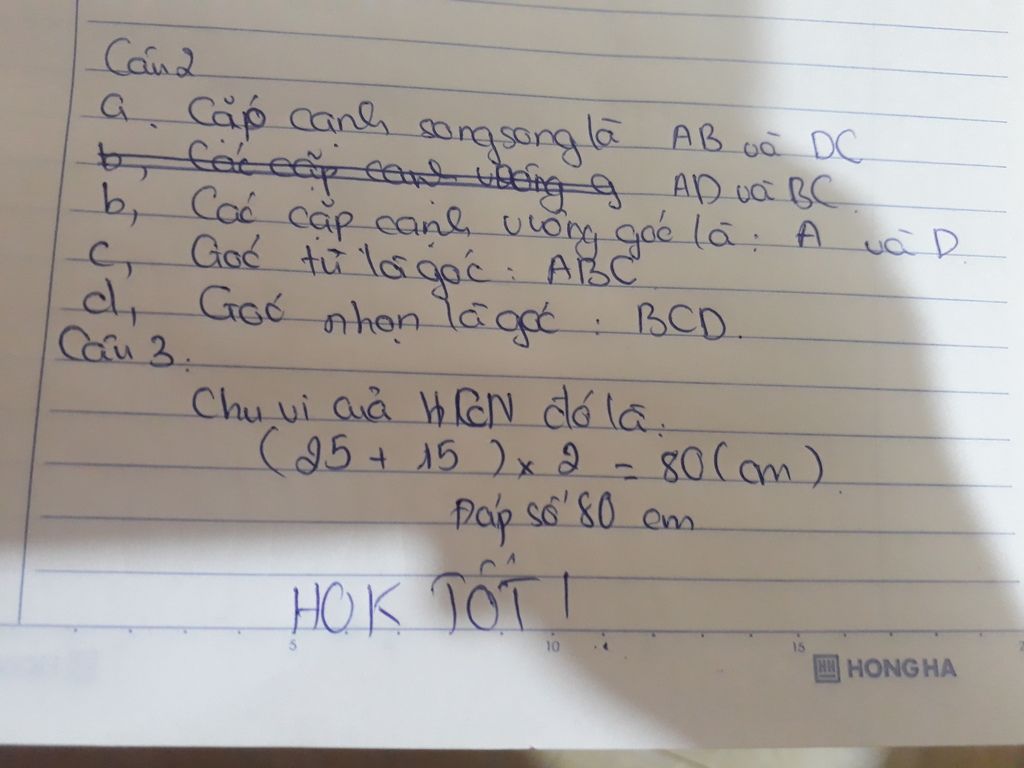 Câu 2
a. Cặp cạnh song song là AB và DC
b, Các cặp cạnh vuông g AD và BC.
b, Các cặp cạnh vuông góc là: A và D.
c, Góc tù là góc: ABC
d, Góc nhọn là góc: BCD.
Câu 3.
Chu vi của HCN đó là:
(25 + 15) x 2 = 80 (cm)
Đáp số 80 cm
HOK TỐT!
5 10 15
HH HONG HA